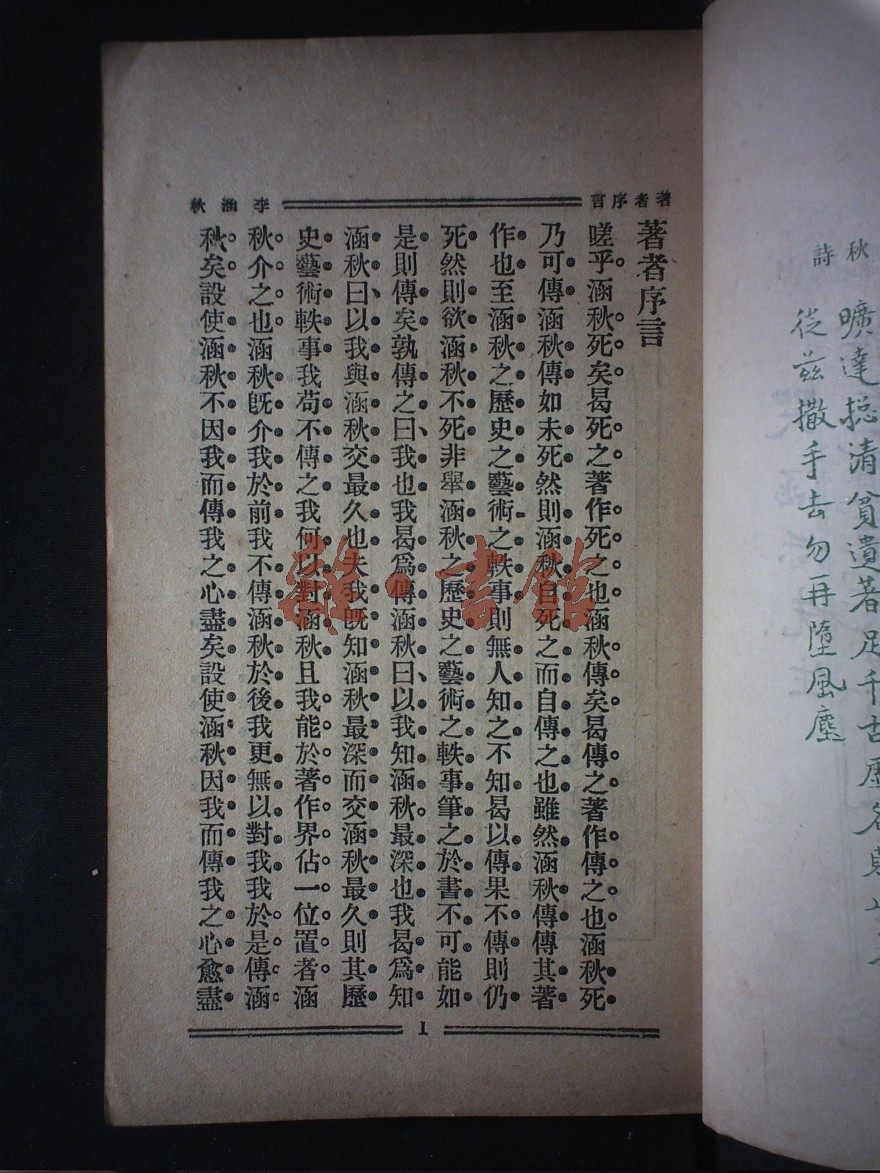 秋詩
曠達摠清貧遺著足千古虛名
從茲撒手去勿再墮風塵
著者序言
李涵秋
著者序言
嗟乎涵秋死矣曷死之著作死之也涵秋傳矣曷傳之著作傳之也涵秋死
乃可傳涵秋傳如未死然則涵秋自死之而自傳之也雖然涵秋傳傳其著
作也至涵秋之歷史之藝術之軼事則無人知之不知曷以傳果不傳則仍
死然則欲涵秋不死非舉涵秋之歷史之藝術之軼事筆之於書不可能如
是則傳矣孰傳之曰、我也我曷爲傳涵秋曰、以我知涵秋最深也我曷爲知
涵秋曰、以我與涵秋交最久也夫我旣知涵秋最深而交涵秋最久則其歷
史藝術軼事我苟不傳之我何以對涵秋且我能於著作界佔一位置者涵
秋介之也涵秋旣介我於前我不傳涵秋於後我更無以對我我於是傳涵
秋矣設使涵秋不因我而傳我之心盡矣設使涵秋因我而傳我之心愈盡
1
雜·書館